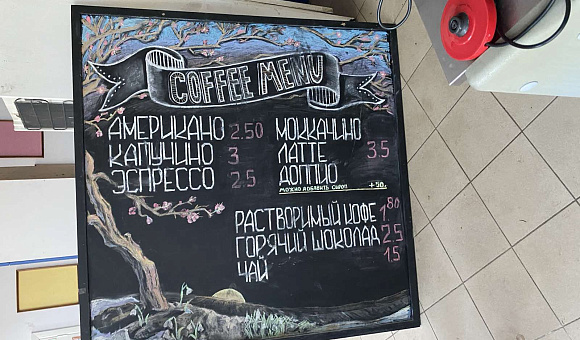 COFFEE MENU
АМЕРИКАНО 2.50
КАПУЧИНО 3
ЭСПРЕССО 2.5
МОККАЧИНО
ЛАТТЕ 3.5
ДОППИО
МОЖНО ДОБАВИТЬ СИРОП +50
РАСТВОРИМЫЙ КОФЕ 1.80
ГОРЯЧИЙ ШОКОЛАД 2.5
ЧАЙ 1.5